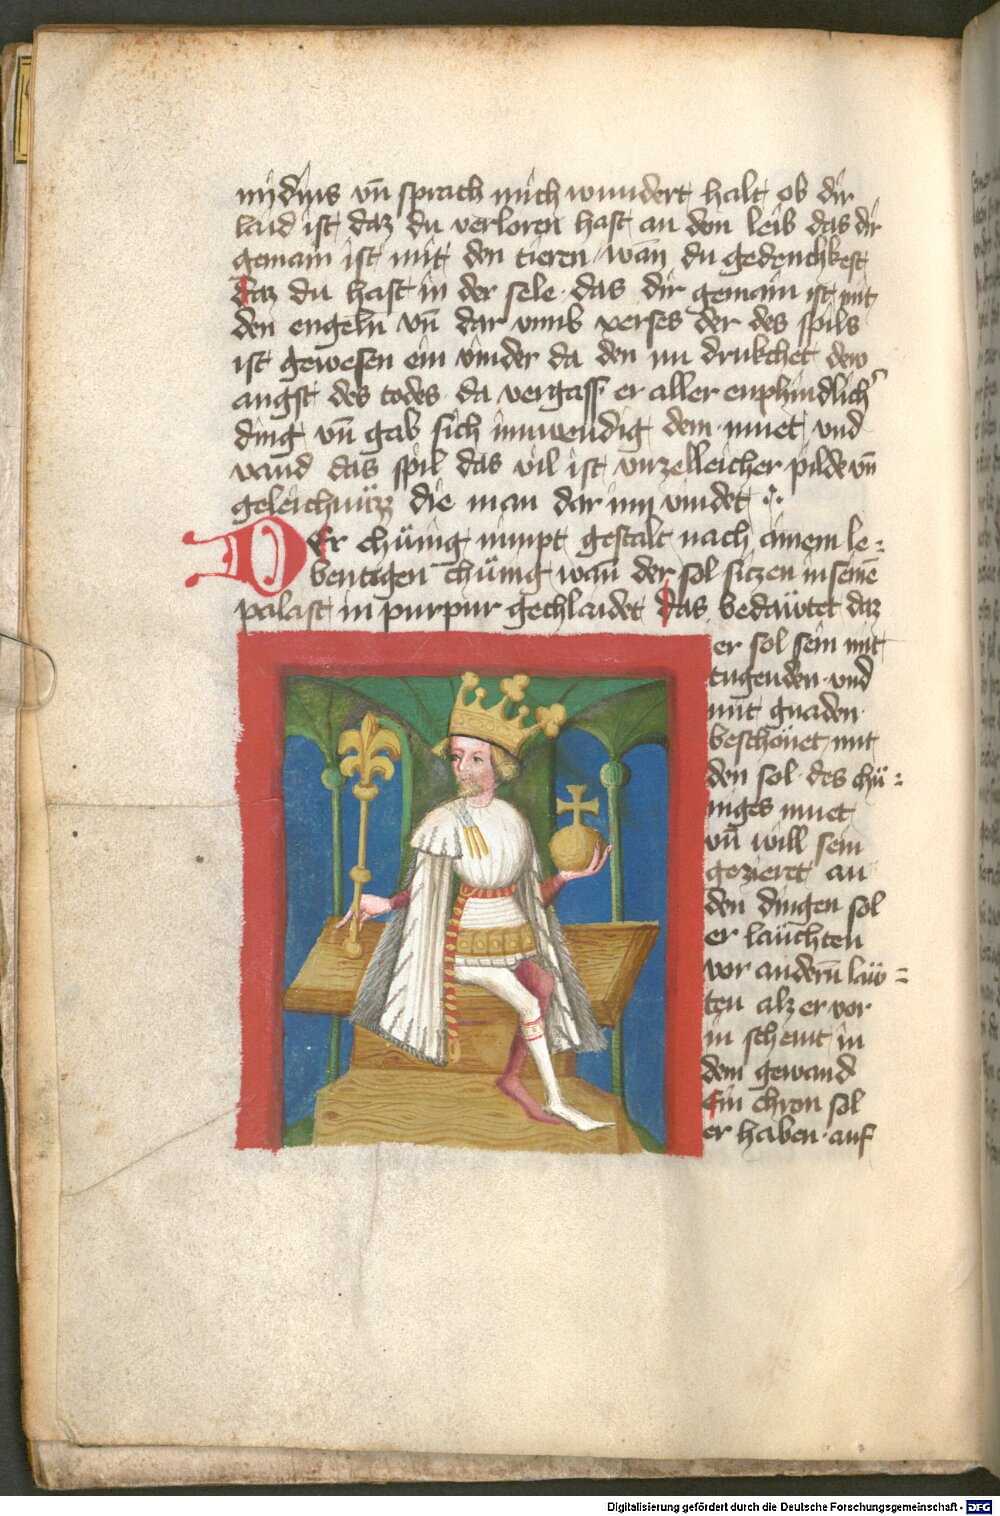 mydius vn̄ sprach mich wundert halt ob dir
laid ist daz du verloren hast an den leib das dir
gemain ist mit den tieren wan̄ du gedenchkest
daz du hast in der sele das dir gemain ist mit
den engeln vn̄ dar vmb xerses der des spils
ist gewesen ein vinder da den nu drukchet dew
angst des todes da vergass er aller enphindlich̛
ding vn̄ gab sich inwendig dem muet vnd
vand das spil das vil ist vnzelleicher pilde vn̄
geleichnüzz die man dar inn vindet
DEr chünig nimpt gestalt nach ainem le=
bentigen chünig wan̄ der sol siczen in seinē
palast in purpur gechlaidet das bedäwtet daz
er sol sein mit
tugenden vnd
mit gnaden
beschönet mit
den sol des chü=
niges muet
vn̄ will sein
gezieret an
den dingen sol
er läuchten
vor andern̄ läw=
ten alz er vor
in scheint in
dem gewand
Ein chron sol
er haben auf
Digitalisierung gefördert durch die Deutsche Forschungsgemeinschaft - DFG